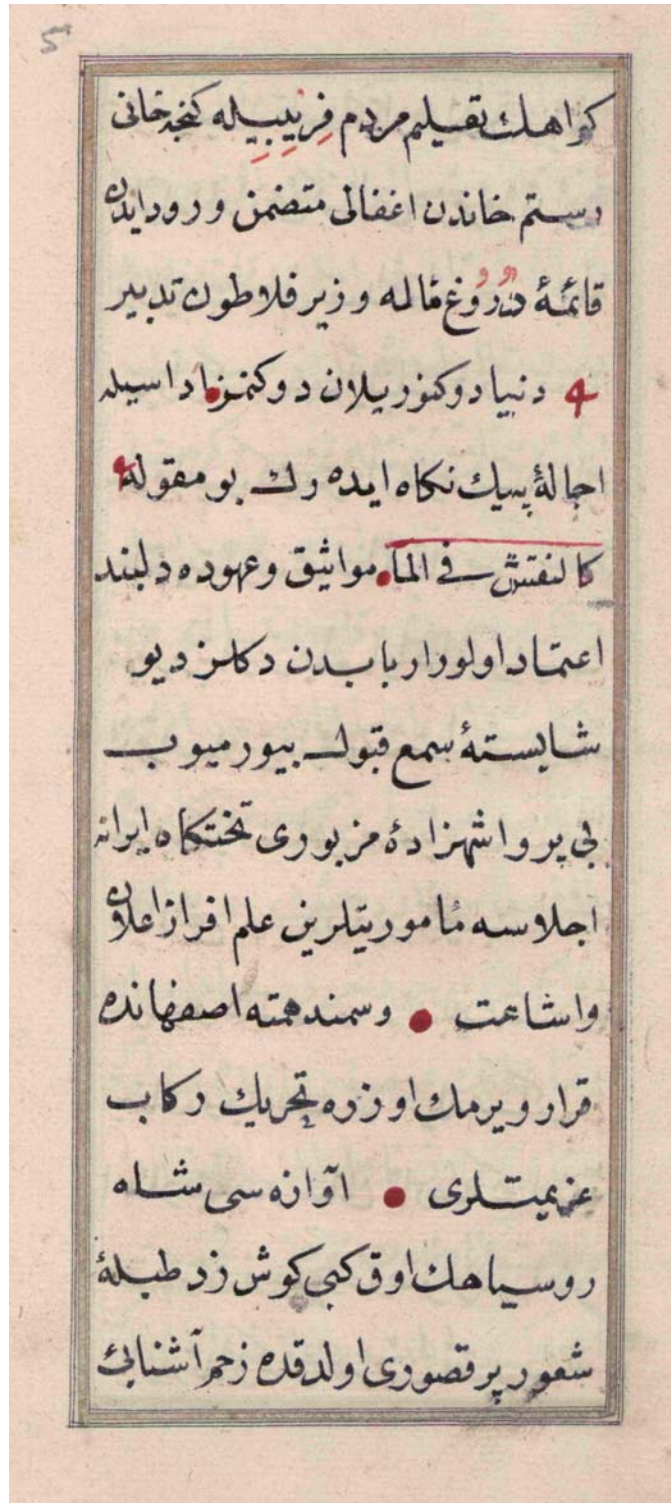 5
كواهلك تعليم مردم فریبیله كنجه خانی
رستم خاندن اغفالی متضمن ورود ایدن
قائمۀ دروغ مأله وزیر فلاطون تدبیر
دنیا دوكنور یلان دوكنمز اداسیله
اجالۀ پیك نكاه ایده رك بو مقوله
كالنقش فی الما مواثیق وعهوده دلبند
اعتماد اولور اربابدن دكلز دیو
شایستۀ سمع قبول بیورمیوب
بی پروا شهزادۀ مزبوری تختكاه ایرانه
اجلاسه مأموریتلرین علم افراز اعلان
واشاعت • وسمند همته اصفهانده
قرار ویرمك اوزره تحریك ركاب
عزیمتلری • آوازه سی شاه
روسیاهك اوق كبی كوش زد طبلۀ
شعور پر قصوری اولدقده زخم آشنایئ